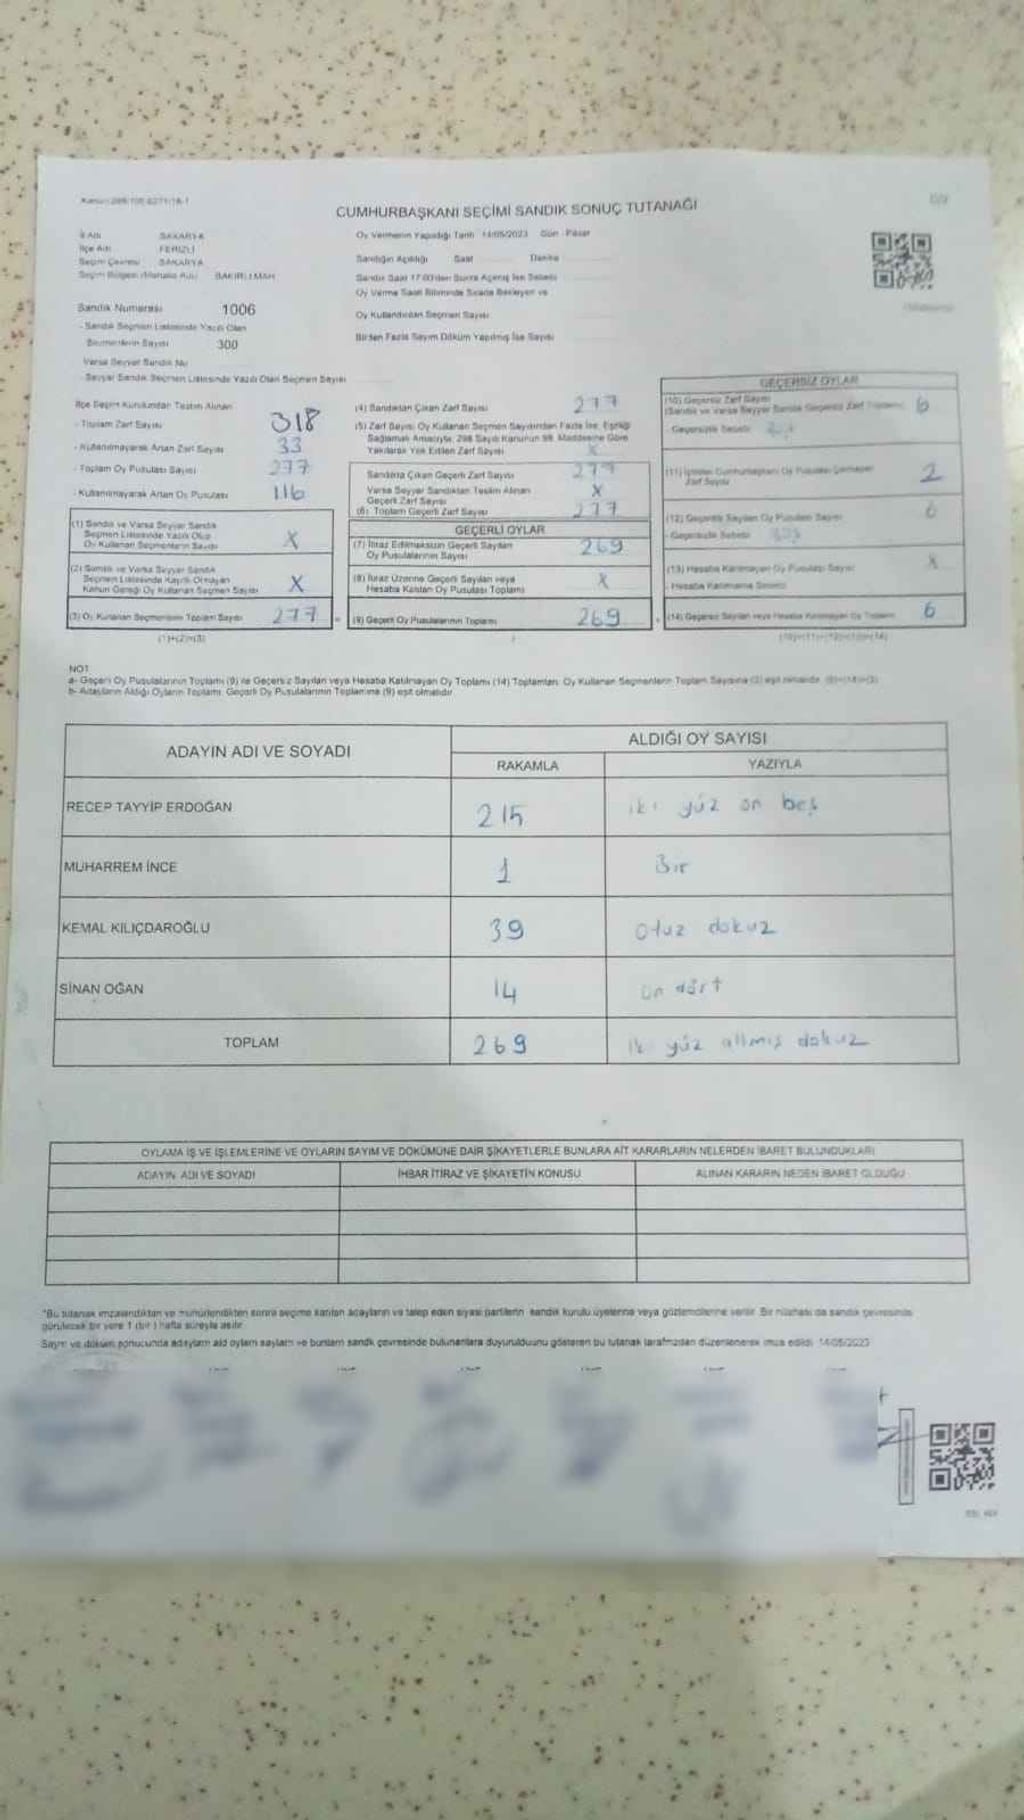 CUMHURBAŞKANI SEÇİMİ SANDIK SONUÇ TUTANAĞI
İl Adı SAKARYA
İlçe Adı FERİZLİ
Seçim Çevresi SAKARYA
Oy Vermenin Yapıldığı Tarih 14/05/2023 Gün Pazar
Sandığın Açıldığı Saat Dakika
Sandık Numarası 1006
Sandık Seçmen Listesinde Yazılı Olan
Seçmenlerin Sayısı 300
Oy Kullandıkları Seçmen Sayısı
Birden Fazla Sayım Döküm Yapılmış İse Sayısı
Varsa Seyyar Sandık No
Seyyar Sandık Seçmen Listesinde Yazılı Olan Seçmen Sayısı
İlçe Seçim Kurulundan Teslim Alınan
- Toplam Zarf Sayısı 318
- Kullanılmayarak Artan Zarf Sayısı 33
- Toplam Oy Pusulası Sayısı 277
- Kullanılmayarak Artan Oy Pusulası 116
(1) Sandık ve Varsa Seyyar Sandık
Seçmen Listesinde Yazılı Olup
Oy Kullanan Seçmenlerin Sayısı X
(2) Sandık ve Varsa Seyyar Sandık
Seçmen Listesinde Kayıtlı Olmayan
Kanun Gereği Oy Kullanan Seçmen Sayısı X
(3) Oy Kullanan Seçmenlerin Toplam Sayısı 277
(1)+(2)=(3)
(4) Sandıktan Çıkan Zarf Sayısı 277
(5) Zarf Sayısı Oy Kullanan Seçmen Sayısından Fazla İse, Eşitliği
Sağlamak Amacıyla, 298 Sayılı Kanunun 98. Maddesine Göre
Yakılarak Yok Edilen Zarf Sayısı X
Sandıkta Çıkan Geçerli Zarf Sayısı 277
Varsa Seyyar Sandıktan Teslim Alınan
Geçerli Zarf Sayısı X
(6) Toplam Geçerli Zarf Sayısı 277
GEÇERLİ OYLAR
(7) İtiraz Edilmeksizin Geçerli Sayılan
Oy Pusulalarının Sayısı 269
(8) İtiraz Üzerine Geçerli Sayılan veya
Hesaba Katılan Oy Pusulası Toplamı X
(9) Geçerli Oy Pusulalarının Toplamı 269
GEÇERSİZ OYLAR
(10) Geçersiz Zarf Sayısı
6
- Geçersizlik Sebebi
Zarf Sayısı 2
(12) Geçersiz Sayılan Oy Pusulası Sayısı 6
- Geçersizlik Sebebi
(13) Hesaba Katılmayan Oy Pusulası Sayısı X
- Hesaba Katılmama Sebebi
(14) Geçersiz Sayılan veya Hesaba Katılmayan Oy Toplamı 6
NOT
a- Geçerli Oy Pusulalarının Toplamı (9) ile Geçersiz Sayılan veya Hesaba Katılmayan Oy Toplamı (14) Toplamları, Oy Kullanan Seçmenlerin Toplam Sayısına (3) eşit olmalıdır. (9)+(14)=(3)
b- Adayların Aldığı Oyların Toplamı, Geçerli Oy Pusulalarının Toplamına (9) eşit olmalıdır
ADAYIN ADI VE SOYADI
ALDIĞI OY SAYISI
RAKAMLA YAZIYLA
RECEP TAYYİP ERDOĞAN 215 iki yüz on beş
MUHARREM İNCE 1 Bir
KEMAL KILIÇDAROĞLU 39 otuz dokuz
SİNAN OĞAN 14 on dört
TOPLAM 269 iki yüz altmış dokuz
OYLAMA İŞ VE İŞLEMLERİNE VE OYLARIN SAYIM VE DÖKÜMÜNE DAİR ŞİKAYETLERLE BUNLARA AİT KARARLARIN NELERDEN İBARET BULUNDUKLARI
ADAYIN ADI VE SOYADI İHBAR İTİRAZ VE ŞİKAYETİN KONUSU ALINAN KARARIN NEDEN İBARET OLDUĞU
"Bu tutanak imzalandıktan ve mühürlendikten sonra seçime katılan adayların ve talep eden siyasi partilerin sandık kurulu üyelerine veya gözlemcilerine verilir. Bir nüshası da sandık çevresinde
görülecek bir yere 1 (bir) hafta süreyle asılır.
Sayım ve döküm sonucunda adayların aldı oyların sayıları ve bunların sandık çevresinde bulunanlara duyurulduunu gösteren bu tutanak tarafımızdan düzenlenerek imza edildi. 14/05/2023